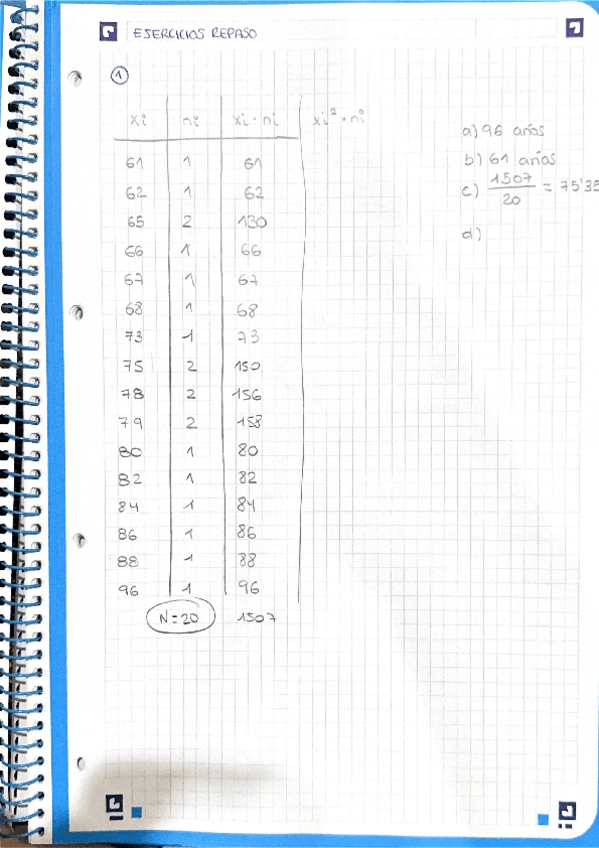 EJERCICIOS REPASO
1
xi ni xi·ni xi²·ni
61 1 61
62 1 62
65 2 130
66 1 66
67 1 67
68 1 68
73 1 73
75 2 150
78 2 156
79 2 158
80 1 80
82 1 82
84 1 84
86 1 86
88 1 88
96 1 96
N=20 1507
a) 96 años
b) 61 años
c) 1507/20 = 75'35
d)